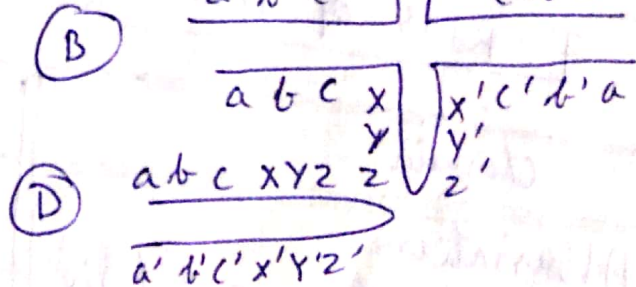 B
a b c x x' c' b' a
y y'
z z'
D a b c x y z
a' b' c' x' y' z'